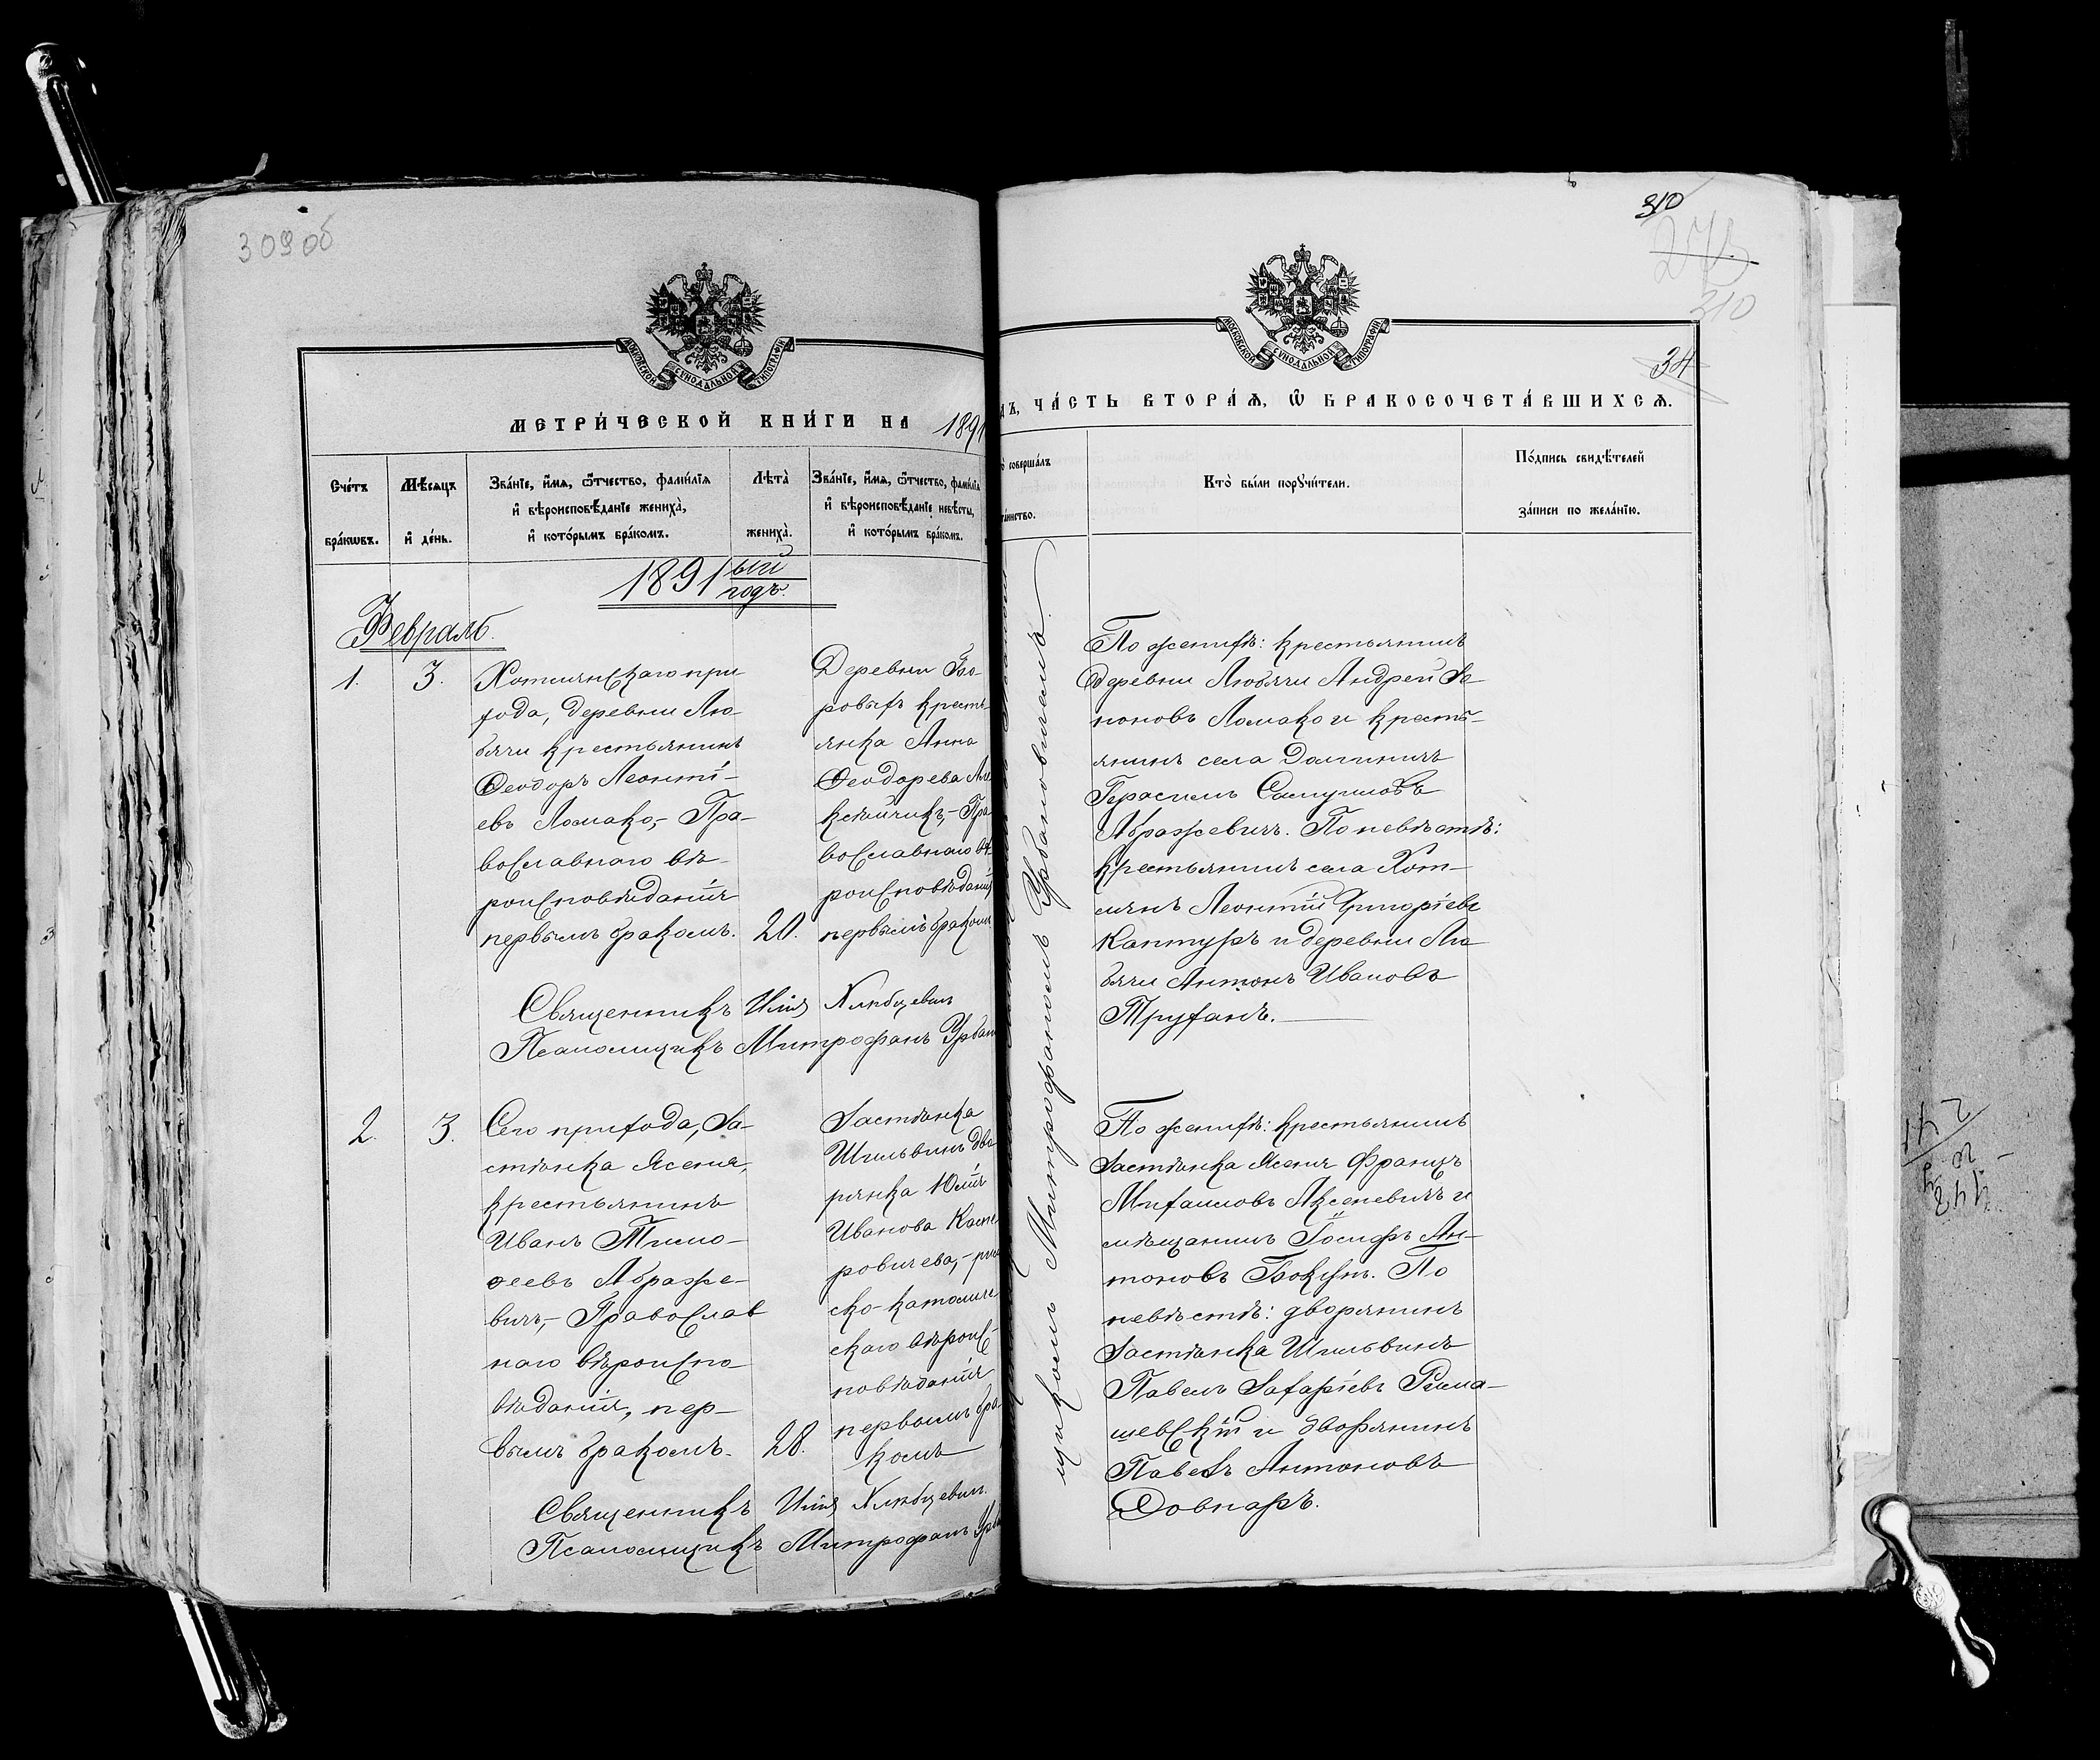 309об
МОСКОВСКОЙ СѴНОДАЛЬНОЙ ТИПОГРАФІИ
МЕТРИ́ЧЕСКОЙ КНИ́ГИ НА 1891
Сче́тъ бра́кѡвъ.
Мѣ́сяцъ и҆ де́нь.
Зва́нїе, и҆́мѧ, ѻ҆́тчество, фами́лїѧ
и҆ вѣроисповѣ́данїе жениха̀,
и҆ кото́рымъ бра́комъ.
Лѣта̀ жениха̀.
Зва́нїе, и҆́мѧ, ѻ҆́тчество, фами́лїѧ
и҆ вѣроисповѣ́данїе невѣ́сты,
и҆ кото́рымъ бра́комъ.
1891ый годъ.
Февраль.
1. 3.
Хотлянскаго при-
хода, деревни Лю-
бячи крестьянинъ
Ѳеодоръ Леонті-
евъ Ломако,- Пра-
вославнаго вѣ-
роисповѣданія
первымъ бракомъ. 20.
Деревни
ровыхъ кресть-
янка Анна
Ѳеодорева Але
ксѣйчикъ,- Пра
вославнаго вѣ-
роисповѣданія
первымъ бракомъ
Священникъ Илія Хлѣбцевичъ
Псаломщикъ Митрофанъ Урбан
2. 3.
Сего прихода, За-
стѣнка Ясенца,
крестьянинъ
Иванъ Тимо-
ѳеевъ Абраже-
вичъ,- Православ
наго вѣроиспо-
вѣданія, пер-
вымъ бракомъ. 28.
Застѣнка
Шильвинъ дво
рянка Юлія
Иванова Каспе
ровичева,- рим
ско-католиче
скаго вѣроис-
повѣданія
первымъ бра
комъ
Священникъ Илія Хлѣбцевичъ.
Псаломщикъ Митрофанъ Урб
310
310
34
МОСКОВСКОЙ СѴНОДАЛЬНОЙ ТИПОГРАФІИ
ЧА́СТЬ ВТОРА́Ѧ, Ѽ БРАКОСОЧЕТА́ВШИХСѦ.
соверша́лъ
та́инство.
Кто̀ бы́ли порꙋчи́тели.
По́дпись свидѣ́телей
за́писи по жела́нїю.
щикомъ Митрофаномъ Урбановичемъ.
По женихѣ: крестьянинъ
деревни Любячи Андрей За-
ноновъ Ломако и кресть-
янинъ села Долгиничъ
Герасимъ Самуиловъ
Абражевичъ. По невѣстѣ:
крестьянинъ села Хот-
лянъ Леонтій Григоріевъ
Кантуръ и деревни Лю
бячи Антонъ Ивановъ
Труханъ.
По женихѣ: крестьянинъ
Застѣнка Ясенца Францъ
Михаиловъ Аксеневичъ и
мѣщанинъ Іосифъ Ан-
тоновъ Бокунъ. По
невѣстѣ: дворянинъ
Застѣнка Шильвинъ
Павелъ Захаріевъ Рима-
шевскій и дворянинъ
Павелъ Антоновъ
Довнаръ.